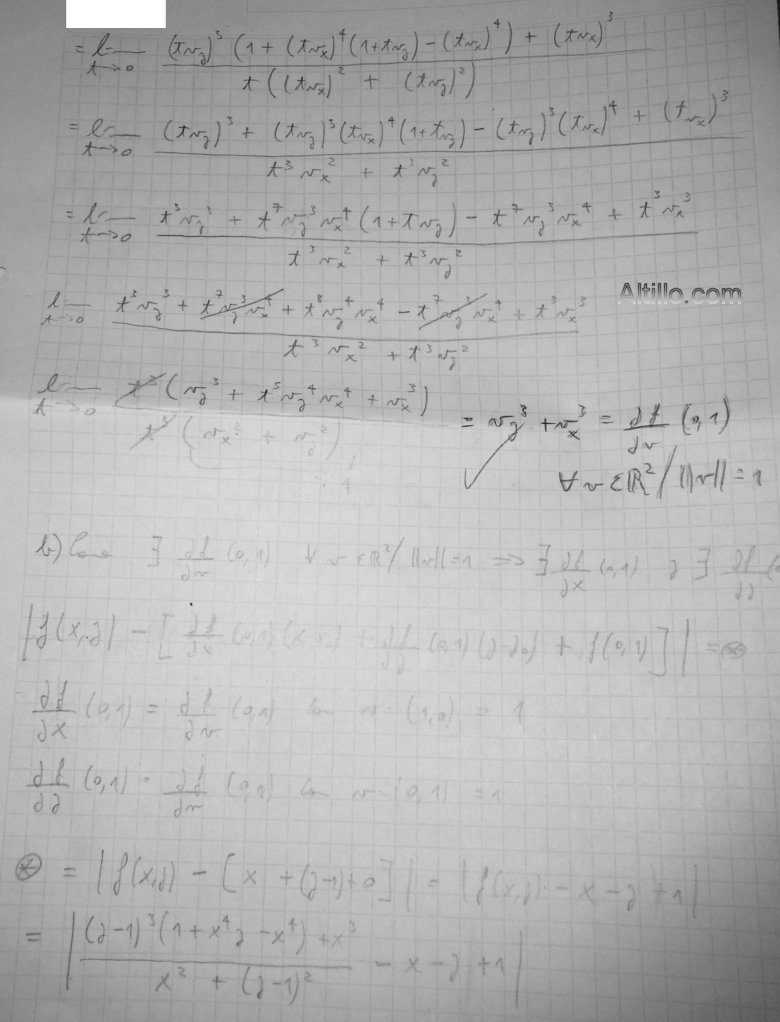 = lim t→0 ((tv_y)³ (1 + (tv_x)⁴(1+tv_y) − (tv_x)⁴) + (tv_x)³) / (t((tv_x)² + (tv_y)²))
= lim t→0 ((tv_y)³ + (tv_y)³(tv_x)⁴(1+tv_y) − (tv_y)³(tv_x)⁴ + (tv_x)³) / (t³v_x² + t³v_y²)
= lim t→0 (t³v_y³ + t⁷v_y³v_x⁴(1+tv_y) − t⁷v_y³v_x⁴ + t³v_x³) / (t³v_x² + t³v_y²)
Altillo.com
lim t→0 (t³v_y³ + t⁷v_y³v_x⁴ + t⁸v_y⁴v_x⁴ − t⁷v_y³v_x⁴ + t³v_x³) / (t³v_x² + t³v_y²)
lim t→0 t³(v_y³ + t⁵v_y⁴v_x⁴ + v_x³) / t³(v_x² + v_y²) = v_y³ + v_x³ = ∂f/∂v (0,1)
1
∀ v ∈ ℝ² / ||v|| = 1
b) Como ∃ ∂f/∂v (0,1) ∀ v ∈ ℝ² / ||v|| = 1 ⇒ ∃ ∂f/∂x (0,1) y ∃ ∂f/∂y
|f(x,y) − [∂f/∂x (0,1)(x−x₀) + ∂f/∂y (0,1)(y−y₀) + f(0,1)]| = ⊛
∂f/∂x (0,1) = ∂f/∂v (0,1) con v = (1,0) = 1
∂f/∂y (0,1) = ∂f/∂v (0,1) con v = (0,1) = 1
⊛ = |f(x,y) − [x + (y−1) + 0]| = |f(x,y) − x − y + 1|
= |((y−1)³(1 + x⁴y − x⁴) + x³) / (x² + (y−1)²) − x − y + 1|